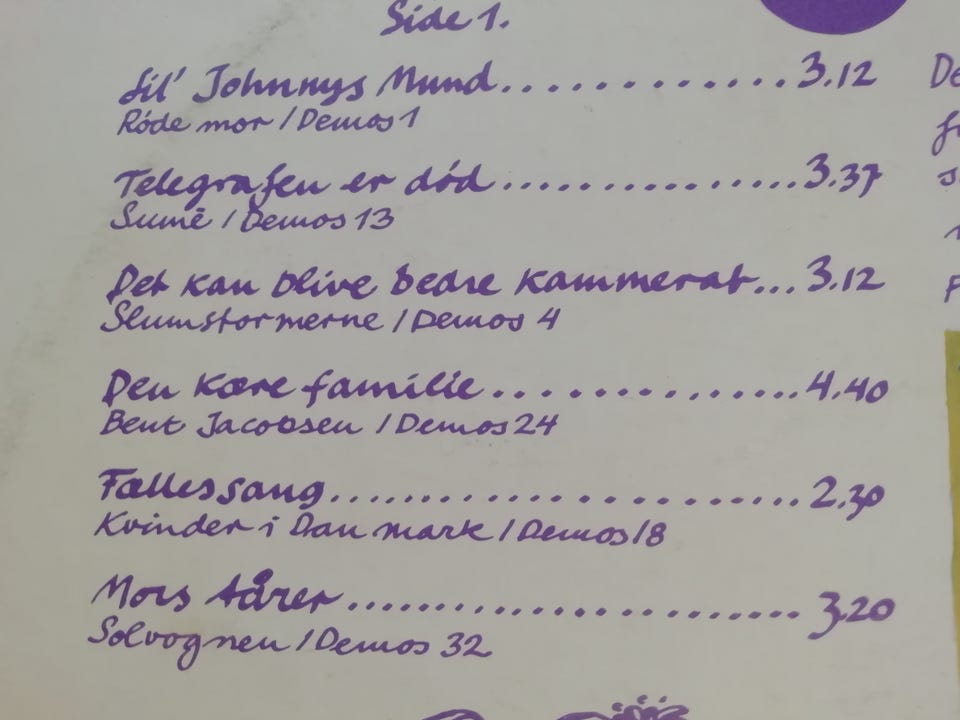 Side 1.
Lil' Johnnys Mund..............3.12
Røde mor / Demos 1
Telegrafen er død................3.37
Sumé / Demos 13
Det kan blive bedre kammerat...3.12
Slumstormerne / Demos 4
Den kære familie...............4.40
Bent Jacobsen / Demos 24
Fællessang........................2.30
Kvinder i Danmark / Demos 18
Mors tårer.........................3.20
Solvognen / Demos 32